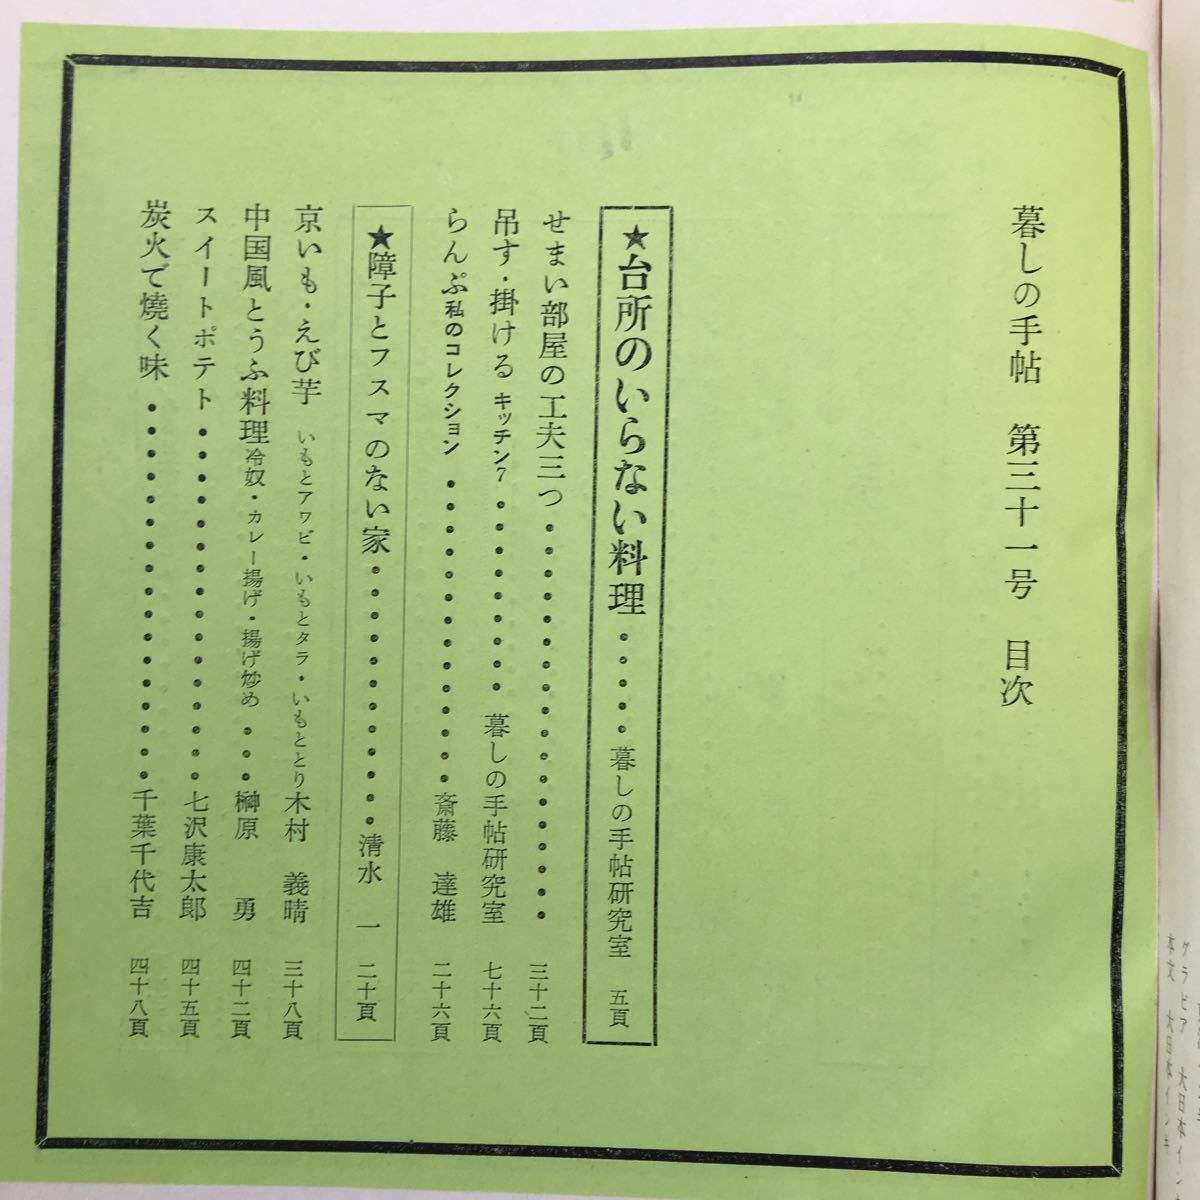 暮しの手帖　第三十一号　目次
★台所のいらない料理・・・・・・暮しの手帖研究室　五頁
せまい部屋の工夫三つ・・・・・・・・・・・・・・・・・・三十二頁
吊す・掛ける　キッチン7・・・・・・・・・暮しの手帖研究室　七十六頁
らんぷ　私のコレクション・・・・・・・・・・・・・・斎藤　達雄　二十六頁
★障子とフスマのない家・・・・・・・・・・・・清水　一　二十頁
京いも・えび芋　いもとアワビ・いもとタラ・いもととり　木村　義晴　三十八頁
中国風とうふ料理　冷奴・カレー揚げ・揚げ炒め・・・榊原　勇　四十二頁
スイートポテト・・・・・・・・・・・・・・・・七沢康太郎　四十五頁
炭火で焼く味・・・・・・・・・・・・・・・・・千葉千代吉　四十八頁
グラビア　大日本イン
本文　大日本インキ